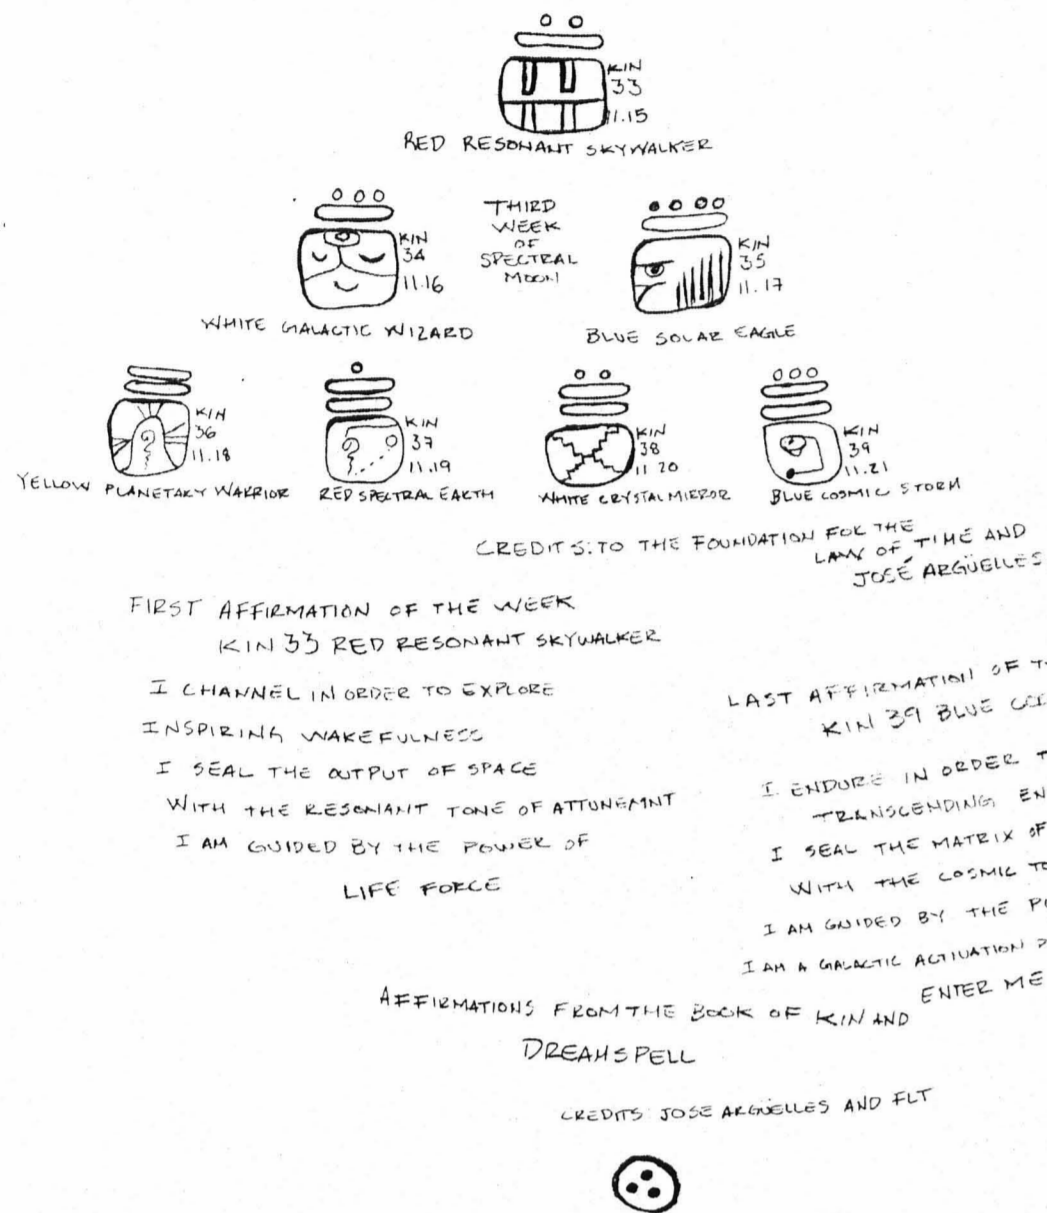 KIN
33
11.15
RED RESONANT SKYWALKER
KIN
34
11.16
WHITE GALACTIC WIZARD
THIRD
WEEK
OF
SPECTRAL
MOON
KIN
35
11.17
BLUE SOLAR EAGLE
KIN
36
11.18
YELLOW PLANETARY WARRIOR
KIN
37
11.19
RED SPECTRAL EARTH
KIN
38
11 20
WHITE CRYSTAL MIRROR
KIN
39
11.21
BLUE COSMIC STORM
CREDITS: TO THE FOUNDATION FOR THE
LAW OF TIME AND
JOSÉ ARGÜELLES
FIRST AFFIRMATION OF THE WEEK
KIN 33 RED RESONANT SKYWALKER
I CHANNEL IN ORDER TO EXPLORE
INSPIRING WAKEFULNESS
I SEAL THE OUTPUT OF SPACE
WITH THE RESONANT TONE OF ATTUNEMNT
I AM GUIDED BY THE POWER OF
LIFE FORCE
LAST AFFIRMATION OF
KIN 39 BLUE
I ENDURE IN ORDER
TRANSCENDING
I SEAL THE MATRIX OF
WITH THE COSMIC
I AM GUIDED BY THE
I AM A GALACTIC ACTIVATION
ENTER ME
AFFIRMATIONS FROM THE BOOK OF KIN AND
DREAMSPELL
CREDITS JOSE ARGÜELLES AND FLT